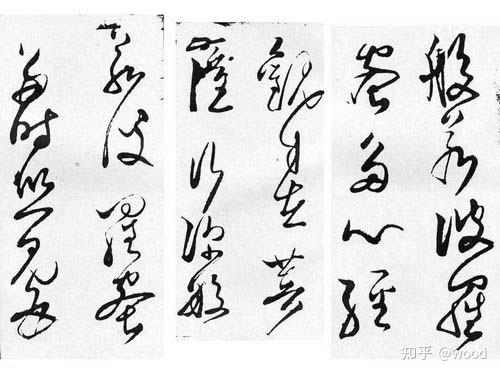 般若波羅
蜜多心經
觀自在菩
薩行深般
若波羅蜜
多時照見五
知乎 @wood